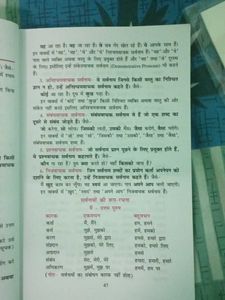 यह आ रहा है। वह जा रहा है। ये सब मेरे खेत रहे हैं। वे आपके साथ हैं।
इन वाक्यों में 'यह', 'वह', 'ये' और 'वे' निश्चयवाचक सर्वनाम हैं। 'यह' और 'ये'
पास वाले व्यक्ति अथवा वस्तु के लिए प्रयुक्त होते हैं, जबकि 'वह' और 'वे' दूरस्थ
के लिए। इसीलिए इन्हें संकेतवाचक सर्वनाम (Demonstrative Pronoun) भी कहते
हैं।
3. अनिश्चयवाचक सर्वनाम- वे सर्वनाम जिनसे किसी वस्तु का निश्चित
ज्ञान न हो, उन्हें अनिश्चयवाचक सर्वनाम कहते हैं। जैसे-
कोई आ रहा है। दूध में कुछ पड़ा है।
इन वाक्यों में 'कोई' तथा 'कुछ' किसी निश्चित व्यक्ति अथवा वस्तु की ओर
संकेत नहीं करते इसलिए अनिश्चयवाचक सर्वनाम हैं।
4. संबंधवाचक सर्वनाम- संबंधवाचक सर्वनाम वे हैं जो एक शब्द का
दूसरे से संबंध जोड़ते हैं। जैसे-
जो करेगा, सो भरेगा। जिसकी लाठी, उसकी भैंस। जैसा करोगे, वैसा भरोगे।
इन वाक्यों में 'जो', 'सो', 'जिसकी', 'उसकी', 'जैसा', 'वैसा' संबंधवाचक सर्वनाम
हैं।
5. प्रश्नवाचक सर्वनाम- जो सर्वनाम प्रश्न पूछने के लिए प्रयुक्त होते हैं,
वे प्रश्नवाचक सर्वनाम कहलाते हैं। जैसे-
कौन गा रहा है? तुम क्या करते हो? यहाँ किसका नाम है?
6. निजवाचक सर्वनाम- जिन सर्वनाम शब्दों का प्रयोग कर्ता अपनेपन को
दर्शाने के लिए करता है, उन्हें निजवाचक सर्वनाम कहते हैं। जैसे-
मैं खुद काम कर लूँगा। वह स्वयं आ जाएगा। राधा अपने आप चली जाएगी।
इन वाक्यों में 'खुद', 'स्वयं' तथा 'अपने आप' निजवाचक सर्वनाम हैं।
सर्वनामों की रूप-रचना
मैं - उत्तम पुरुष
कारक एकवचन बहुवचन
कर्ता मैं, मैंने हम, हमने
कर्म मुझे, मुझको हमें, हमको
करण मुझसे, मेरे द्वारा हमसे, हमारे द्वारा
संप्रदान मुझको, मेरे लिए हमको, हमारे लिए
अपादान मुझसे हमसे
संबंध मेरा, मेरी, मेरे हमारा, हमारी, हमारे
अधिकरण मुझमें, मुझ पर हममें, हम पर
(नोट - सर्वनामों का संबोधन कारक नहीं होता)
47